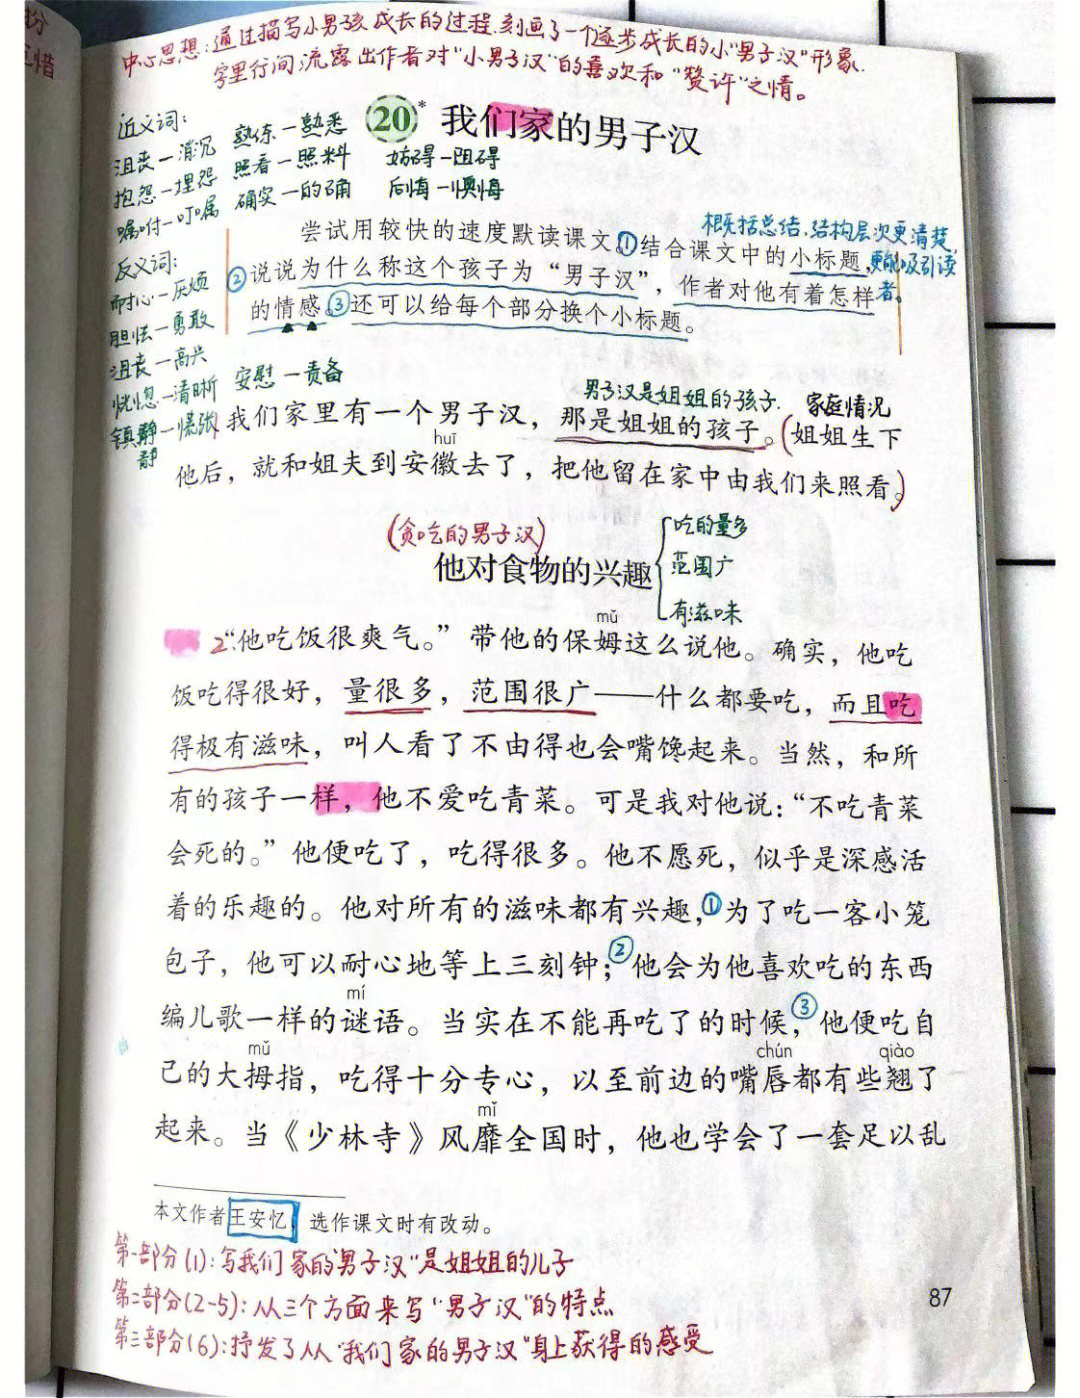 中心思想:通过描写小男孩成长的过程,刻画了一个逐步成长的小"男子汉"形象.
字里行间流露出作者对"小男子汉"的喜欢和"赞许"之情。
近义词:
沮丧—消沉 熟练—熟悉
抱怨—埋怨 照看—照料 妨碍—阻碍
嘱咐—叮嘱 确实—的确 后悔—懊悔
20* 我们家的男子汉
反义词:
耐心—厌烦
胆怯—勇敢
沮丧—高兴
恍惚—清晰 安慰—责备
镇静—慌张
静
概括总结,结构层次更清楚,
更能吸引读
者。
尝试用较快的速度默读课文。①结合课文中的小标题,
②说说为什么称这个孩子为“男子汉”,作者对他有着怎样
的情感。③还可以给每个部分换个小标题。
男子汉是姐姐的孩子. 家庭情况
我们家里有一个男子汉,那是姐姐的孩子。(姐姐生下
huī
他后,就和姐夫到安徽去了,把他留在家中由我们来照看。)
(贪吃的男子汉)
他对食物的兴趣
吃的量多
范围广
有滋味
mǔ
2“他吃饭很爽气。”带他的保姆这么说他。确实,他吃
饭吃得很好,量很多,范围很广——什么都要吃,而且吃
得极有滋味,叫人看了不由得也会嘴馋起来。当然,和所
有的孩子一样,他不爱吃青菜。可是我对他说:“不吃青菜
会死的。”他便吃了,吃得很多。他不愿死,似乎是深感活
着的乐趣的。他对所有的滋味都有兴趣,①为了吃一客小笼
包子,他可以耐心地等上三刻钟;②他会为他喜欢吃的东西
mí
编儿歌一样的谜语。当实在不能再吃了的时候,③他便吃自
mǔ chún qiào
己的大拇指,吃得十分专心,以至前边的嘴唇都有些翘了
mǐ
起来。当《少林寺》风靡全国时,他也学会了一套足以乱
本文作者王安忆,选作课文时有改动。
第一部分(1):写我们家的"男子汉"是姐姐的儿子
第二部分(2-5):从三个方面来写"男子汉"的特点
第三部分(6):抒发了从"我们家的男子汉"身上获得的感受
87